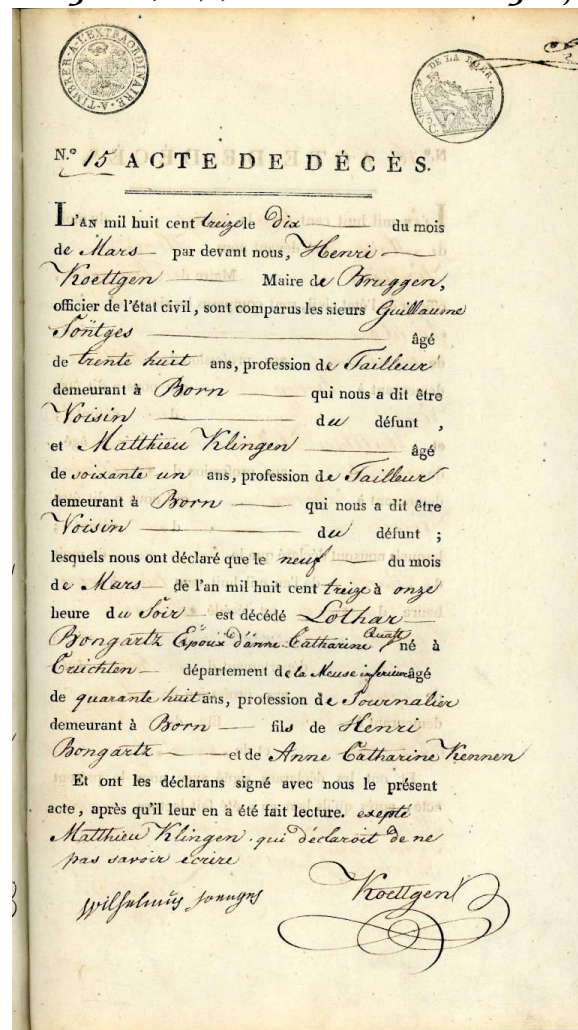 A TIMBRER A L'EXTRAORDINAIRE
DE LA ROER
N.º 15 ACTE DE DÉCÈS.
L'AN mil huit cent treize le Dix du mois
de Mars par devant nous, Henri
Koettgen Maire de Bruggen,
officier de l'état civil, sont comparus les sieurs Guillaume
Töntges âgé
de trente huit ans, profession de Tailleur
demeurant à Born qui nous a dit être
Voisin du défunt ,
et Matthieu Klingen âgé
de soixante un ans, profession de Tailleur
demeurant à Born qui nous a dit être
Voisin du défunt ;
lesquels nous ont déclaré que le neuf du mois
de Mars de l'an mil huit cent treize à onze
heure du Soir est décédé Lothar
Bongartz Epoux d'anne Catharine Quast né à
Cruchten département de la Meuse inferieur âgé
de quarante huit ans, profession de Journalier
demeurant à Born fils de Henri
Bongartz et de Anne Catharine Kennen
Et ont les déclarans signé avec nous le présent
acte, après qu'il leur en a été fait lecture. exepté
Matthieu Klingen qui déclaroit de ne
pas savoir écrire
Wilhelmus
Koettgen